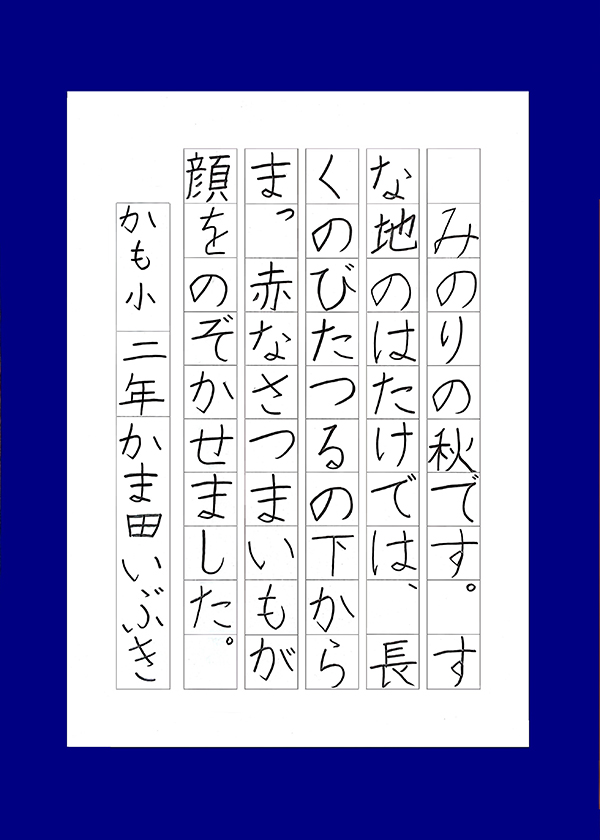 みのりの秋です。す
な地のはたけでは、長
くのびたつるの下から
まっ赤なさつまいもが
顔をのぞかせました。
かも小 二年かま田いぶき